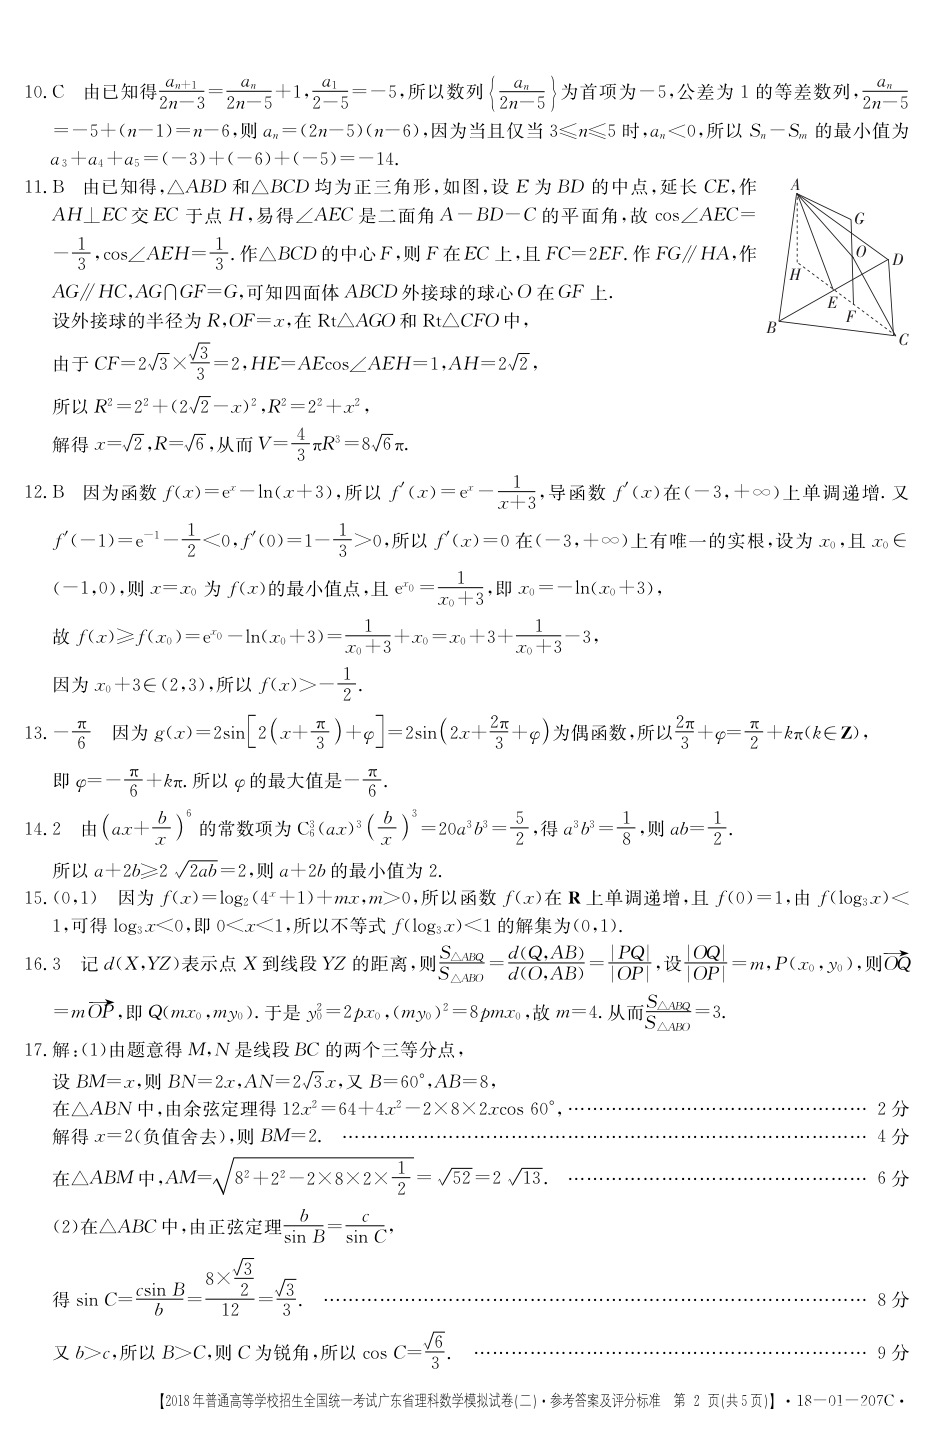 10. C 由已知得 a_{n+1}/(2n−3)=a_n/(2n−5)+1, a_1/(2−5)=−5,所以数列{a_n/(2n−5)}为首项为−5,公差为 1 的等差数列, a_n/(2n−5)
=−5+(n−1)=n−6,则 a_n=(2n−5)(n−6),因为当且仅当 3≤n≤5 时,a_n<0,所以 S_n−S_m 的最小值为
a_3+a_4+a_5=(−3)+(−6)+(−5)=−14.
11. B 由已知得,△ABD 和△BCD 均为正三角形,如图,设 E 为 BD 的中点,延长 CE,作
AH⊥EC 交 EC 于点 H,易得∠AEC 是二面角 A−BD−C 的平面角,故 cos∠AEC=
−1/3,cos∠AEH=1/3.作△BCD 的中心 F,则 F 在 EC 上,且 FC=2EF.作 FG∥HA,作
AG∥HC,AG∩GF=G,可知四面体 ABCD 外接球的球心 O 在 GF 上.
设外接球的半径为 R,OF=x,在 Rt△AGO 和 Rt△CFO 中,
由于 CF=2√3×√3/3=2,HE=AEcos∠AEH=1,AH=2√2,
所以 R²=2²+(2√2−x)²,R²=2²+x²,
解得 x=√2,R=√6,从而 V=4/3πR³=8√6π.
A
G
O
D
H
E
F
B
C
12. B 因为函数 f(x)=e^x−ln(x+3),所以 f′(x)=e^x−1/(x+3),导函数 f′(x)在(−3,+∞)上单调递增.又
f′(−1)=e^{−1}−1/2<0,f′(0)=1−1/3>0,所以 f′(x)=0 在(−3,+∞)上有唯一的实根,设为 x_0,且 x_0∈
(−1,0),则 x=x_0 为 f(x)的最小值点,且 e^{x_0}=1/(x_0+3),即 x_0=−ln(x_0+3),
故 f(x)≥f(x_0)=e^{x_0}−ln(x_0+3)=1/(x_0+3)+x_0=x_0+3+1/(x_0+3)−3,
因为 x_0+3∈(2,3),所以 f(x)>−1/2.
13. −π/6 因为 g(x)=2sin[2(x+π/3)+φ]=2sin(2x+2π/3+φ)为偶函数,所以2π/3+φ=π/2+kπ(k∈Z),
即 φ=−π/6+kπ.所以 φ 的最大值是−π/6.
14. 2 由(ax+b/x)^6 的常数项为 C_6^3(ax)^3(b/x)^3=20a³b³=5/2,得 a³b³=1/8,则 ab=1/2.
所以 a+2b≥2√(2ab)=2,则 a+2b 的最小值为 2.
15. (0,1) 因为 f(x)=log_2(4^x+1)+mx,m>0,所以函数 f(x)在 R 上单调递增,且 f(0)=1,由 f(log_3x)<
1,可得 log_3x<0,即 0<x<1,所以不等式 f(log_3x)<1 的解集为(0,1).
16. 3 记 d(X,YZ)表示点 X 到线段 YZ 的距离,则 S_{△ABQ}/S_{△ABO}=d(Q,AB)/d(O,AB)=|PQ|/|OP|,设|OQ|/|OP|=m,P(x_0,y_0),则 \overrightarrow{OQ}
=m\overrightarrow{OP},即 Q(mx_0,my_0).于是 y_0²=2px_0,(my_0)²=8pmx_0,故 m=4.从而 S_{△ABQ}/S_{△ABO}=3.
17. 解:(1)由题意得 M,N 是线段 BC 的两个三等分点,
设 BM=x,则 BN=2x,AN=2√3x,又 B=60°,AB=8,
在△ABN 中,由余弦定理得 12x²=64+4x²−2×8×2xcos 60°, ………………………………………… 2 分
解得 x=2(负值舍去),则 BM=2. ………………………………………………………………………… 4 分
在△ABM 中,AM=√(8²+2²−2×8×2×1/2)=√52=2√13. ………………………………………… 6 分
(2)在△ABC 中,由正弦定理 b/sin B=c/sin C,
得 sin C=csin B/b=(8×√3/2)/12=√3/3. …………………………………………………………………………… 8 分
又 b>c,所以 B>C,则 C 为锐角,所以 cos C=√6/3. ……………………………………………………… 9 分
【2018 年普通高等学校招生全国统一考试广东省理科数学模拟试卷(二)·参考答案及评分标准 第 2 页(共 5 页)】·18−01−207C·